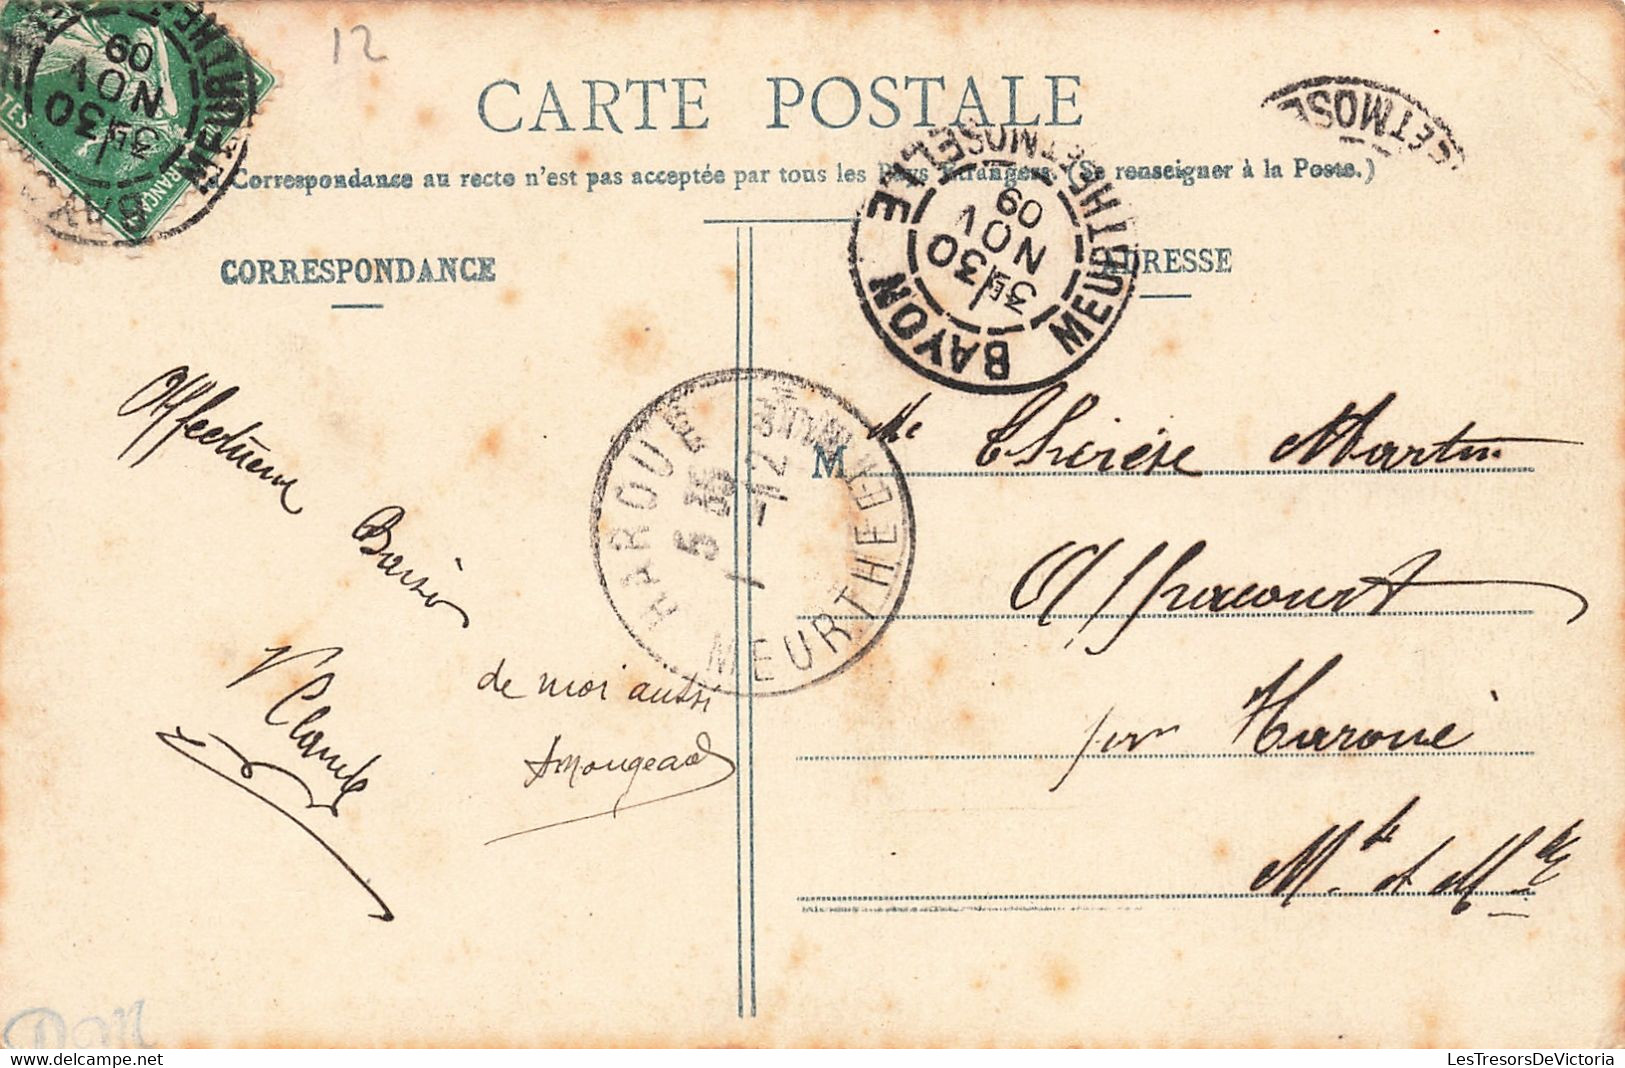 12
CARTE POSTALE
Correspondance au recto n'est pas acceptée par tous les Pays Étrangers. (Se renseigner à la Poste.)
CORRESPONDANCE
ADRESSE
BAYON
MEURTHE ET MOSELLE
3E 30
NOV
09
BAYON
MEURTHE ET MOSELLE
3E 30
NOV
09
ET MOSE
HAROUÉ
MEURTHE-ET-MOSELLE
5
1 -12
Affectueux Baiser
V Claude
de moi aussi
AMougeard
M lle Thérèse Martin
Affracourt
par Haroué
Mthe et Mlle
LesTresorsDeVictoria